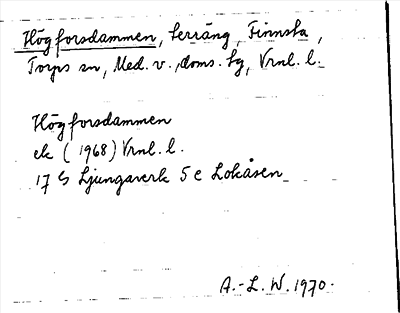 Högforsdammen, terräng, Finnsta,
Torps sn, Med. v., doms. tg, Vrnl. l.
Högforsdammen
ek (1968) Vrnl. l.
17 G Ljungaverk 5 e Lokåsen
A.-L. W. 1970.